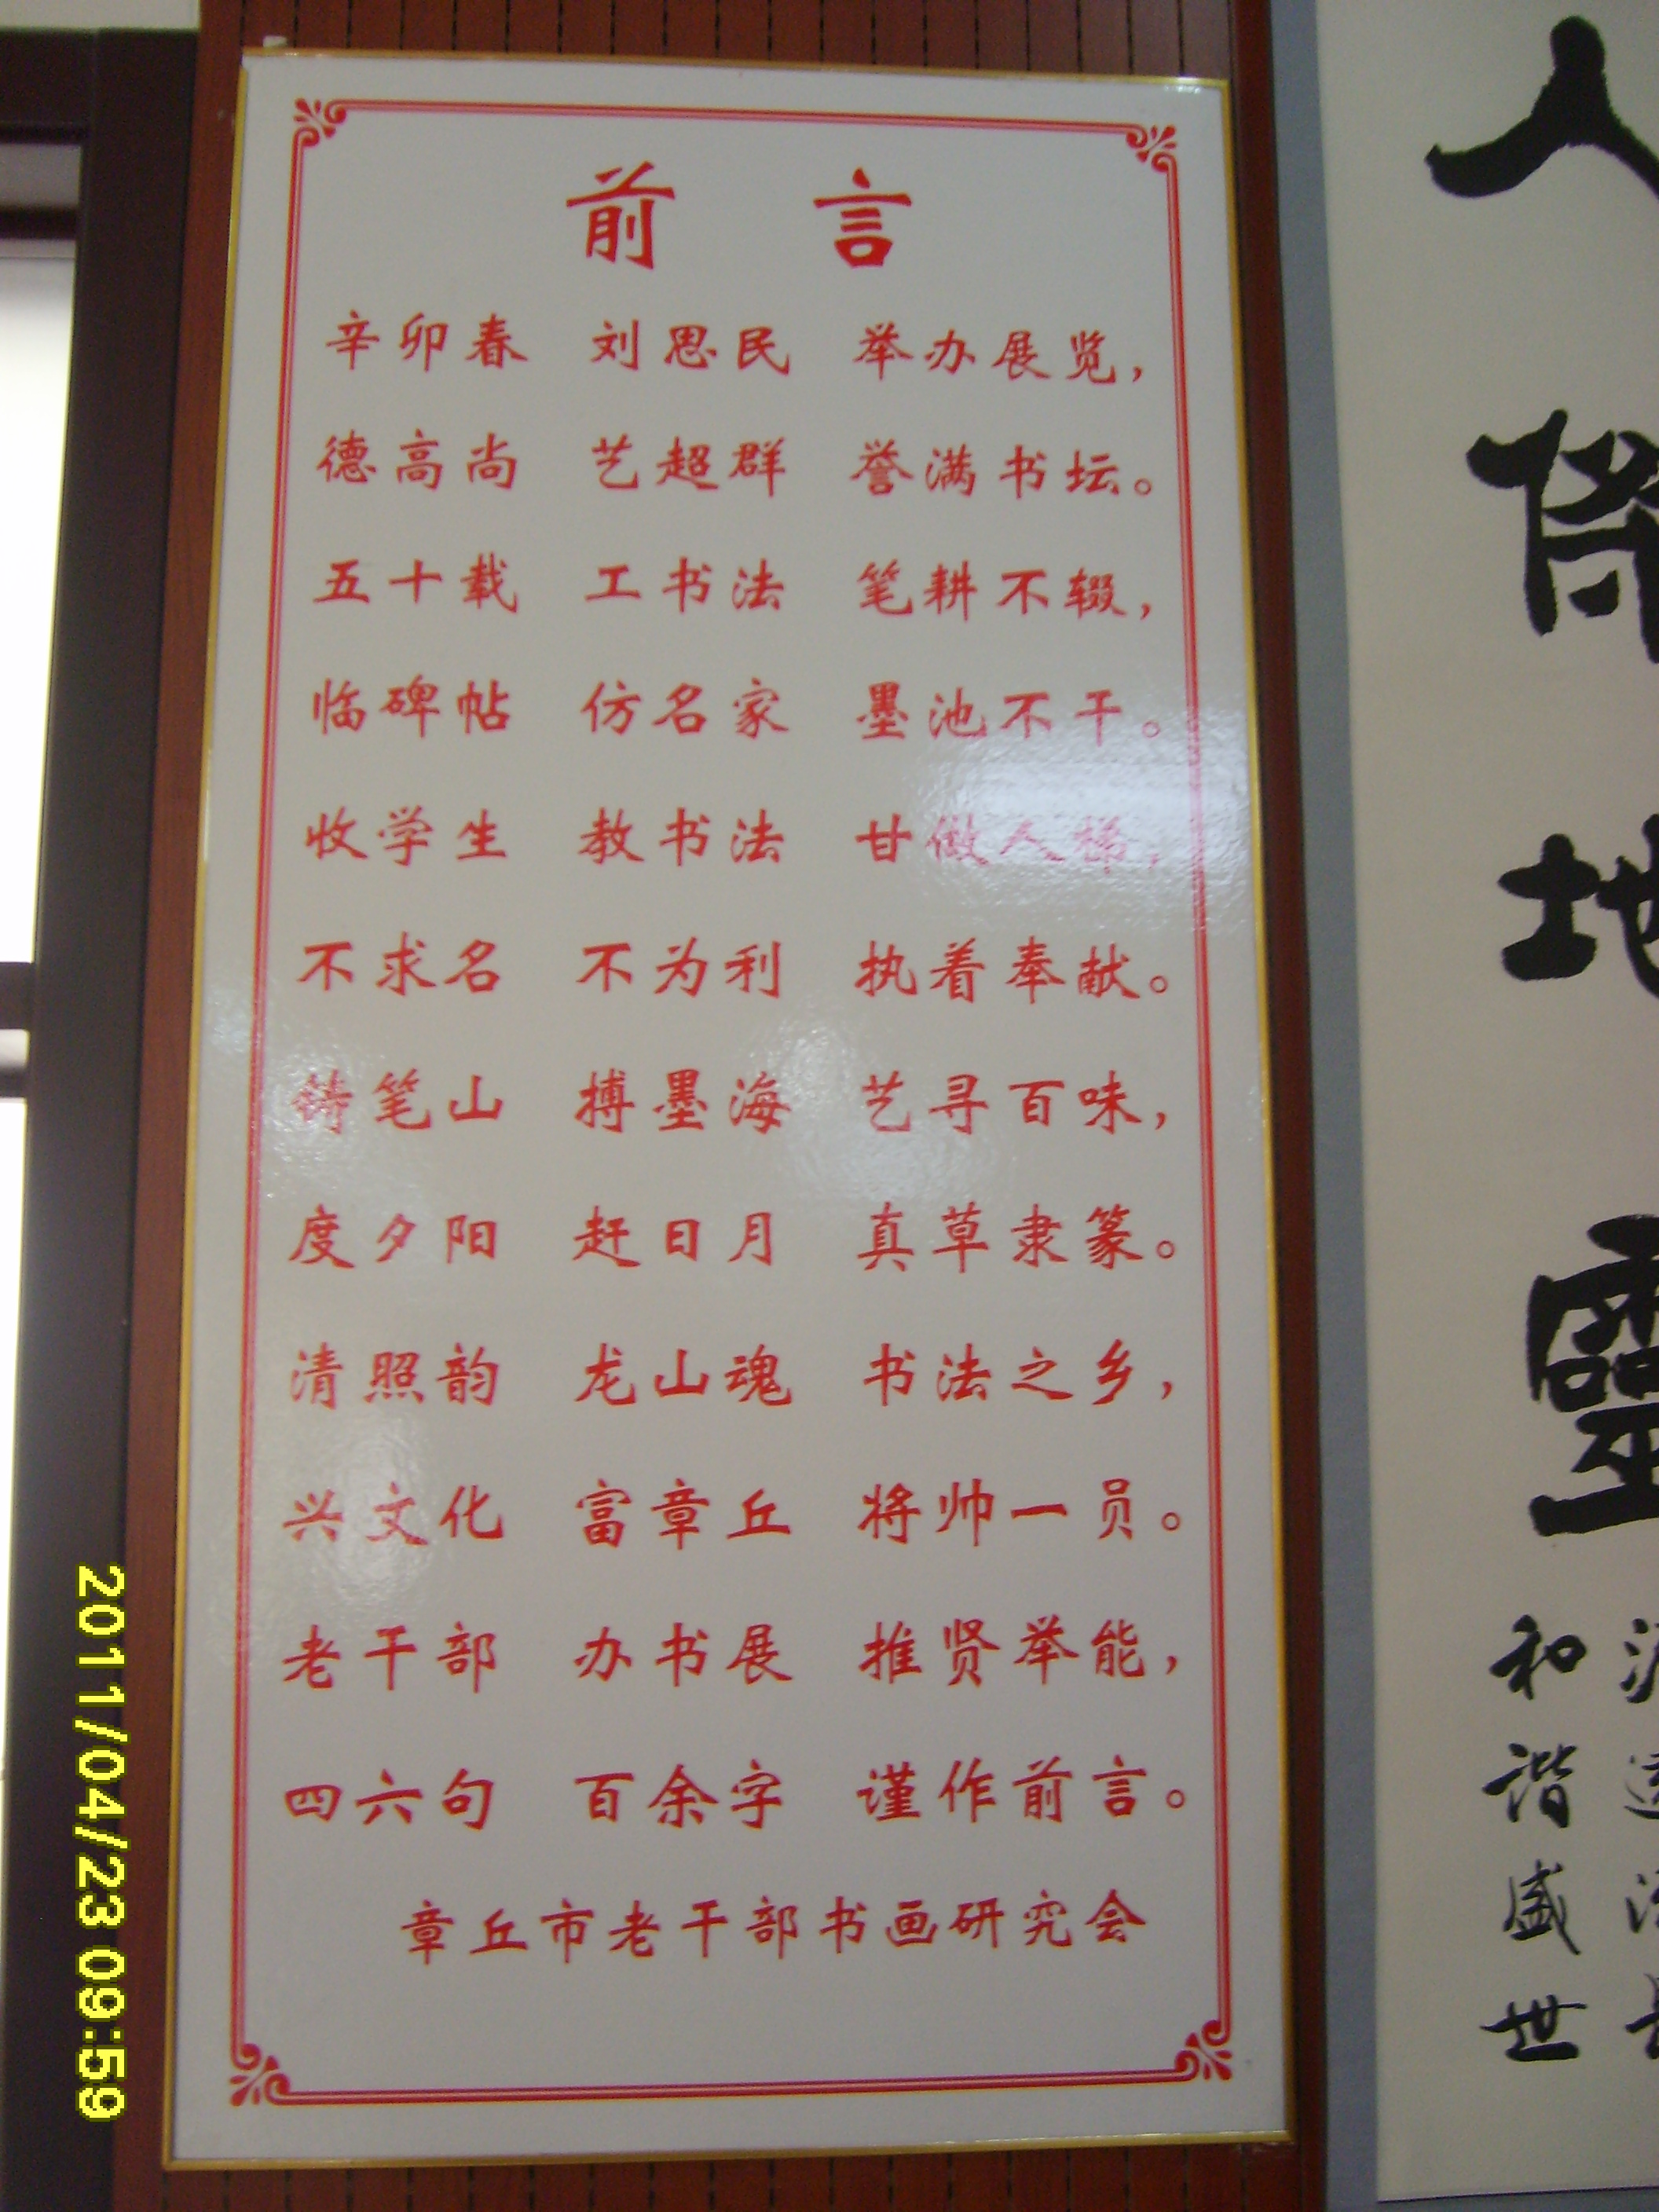 前 言
辛卯春 刘思民 举办展览，
德高尚 艺超群 誉满书坛。
五十载 工书法 笔耕不辍，
临碑帖 仿名家 墨池不干。
收学生 教书法 甘做人梯，
不求名 不为利 执着奉献。
铸笔山 搏墨海 艺寻百味，
度夕阳 赶日月 真草隶篆。
清照韵 龙山魂 书法之乡，
兴文化 富章丘 将帅一员。
老干部 办书展 推贤举能，
四六句 百余字 谨作前言。
章丘市老干部书画研究会
人
地
靈
和谐盛世
2011/04/23 09:59